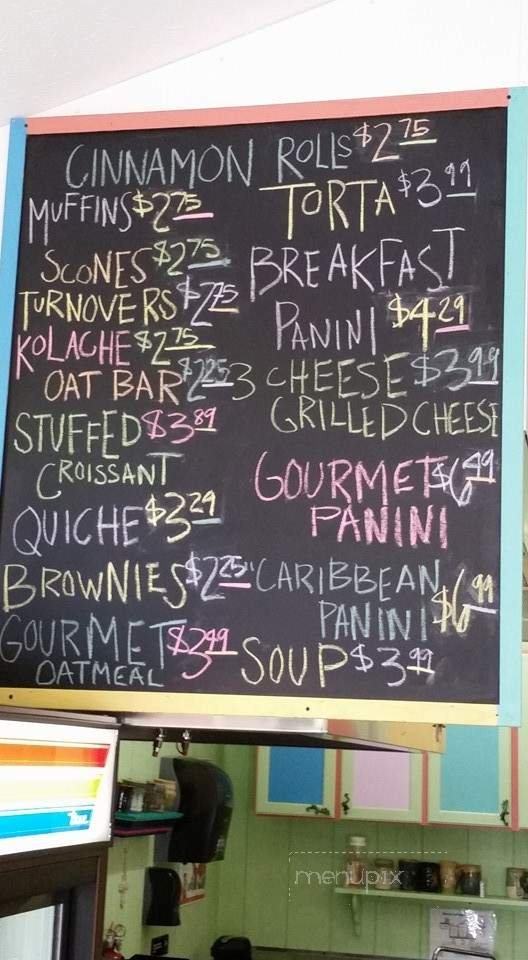 CINNAMON ROLLS $2 75
MUFFINS $2 75
SCONES $2 75
TURNOVERS $2 75
KOLACHE $2 75
OAT BAR $2 25
STUFFED $3 89
CROISSANT
QUICHE $3 29
BROWNIES $2 25
GOURMET $3 99
OATMEAL
TORTA $3 99
BREAKFAST
PANINI $4 29
3 CHEESE $3 99
GRILLED CHEESE
GOURMET $6 49
PANINI
"CARIBBEAN
PANINI $6 99
SOUP $3 99
menupix